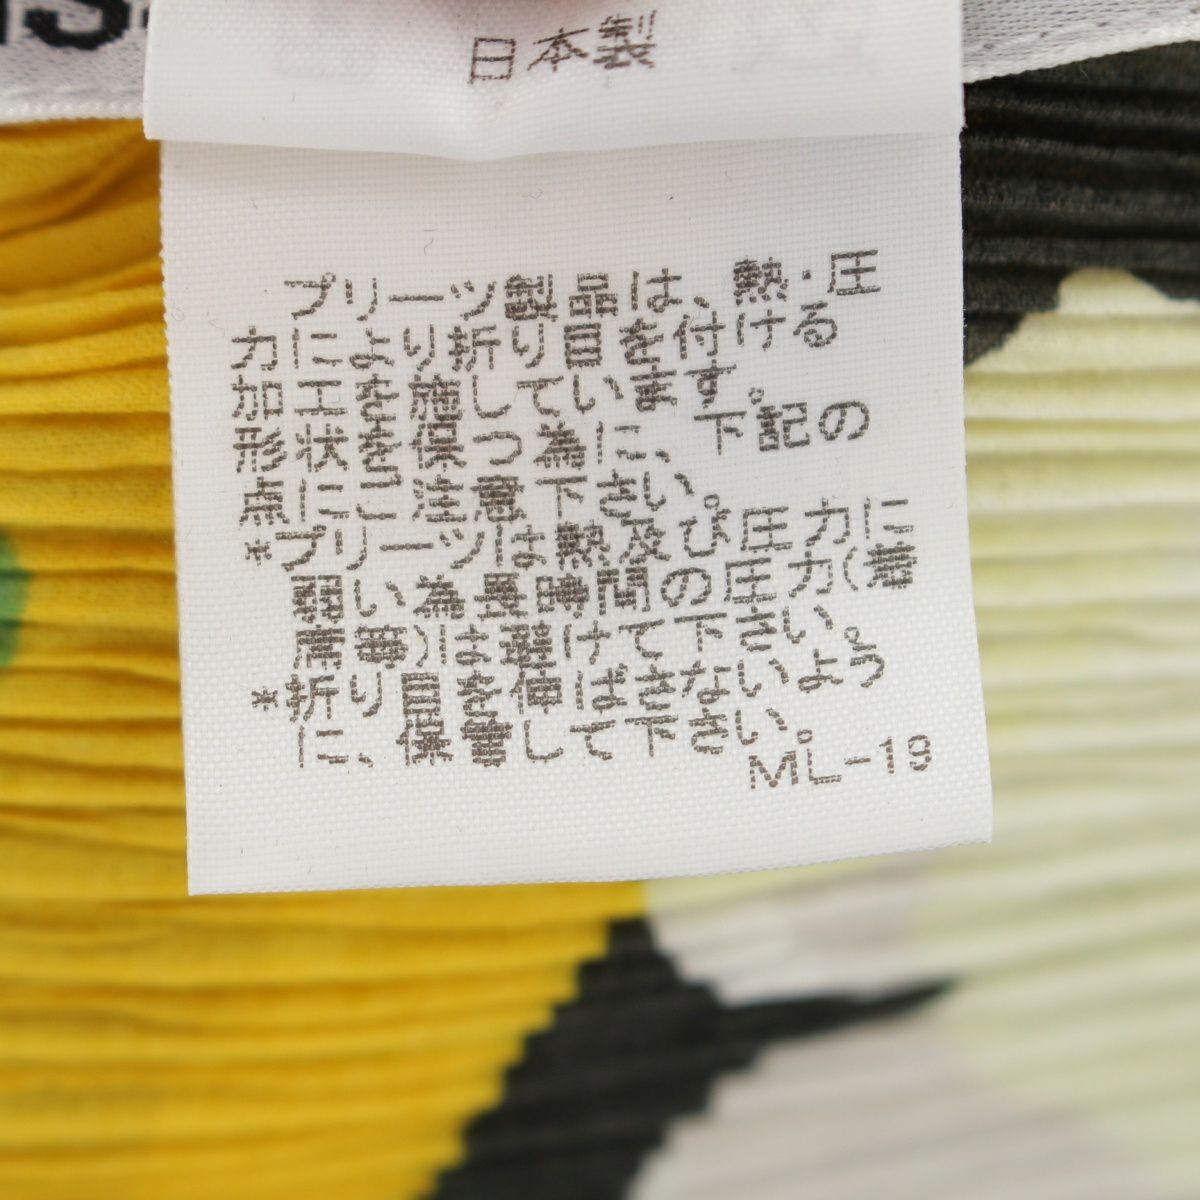 日本製
プリーツ製品は、熱・圧
力により折り目を付ける
加工を施しています。
形状を保つ為に、下記の
点にご注意下さい。
*プリーツは熱及び圧力に
弱い為長時間の圧力(着
席等)は避けて下さい。
*折り目を伸ばさないよう
に、保管して下さい。
ML-19